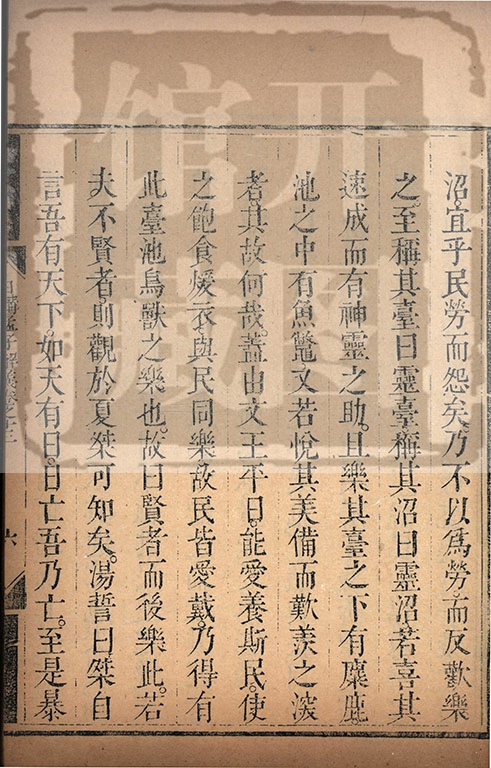 沼。宜乎民勞而怨矣。乃不以為勞。而反歡樂
之。至稱其臺曰靈臺。稱其沼曰靈沼。若喜其
速成而有神靈之助。且樂其臺之下有麋鹿。
池之中有魚鼈。又若悅其美備而歎羨之深
者。其故何哉。蓋由文王平日。能愛養斯民。使
之飽食煖衣。與民同樂。故民皆愛戴。乃得有
此臺池鳥獸之樂也。故曰賢者而後樂此。若
夫不賢者。則觀於夏桀可知矣。湯誓曰桀自
言吾有天下。如天有日。日亡吾乃亡。至是暴
日講
六